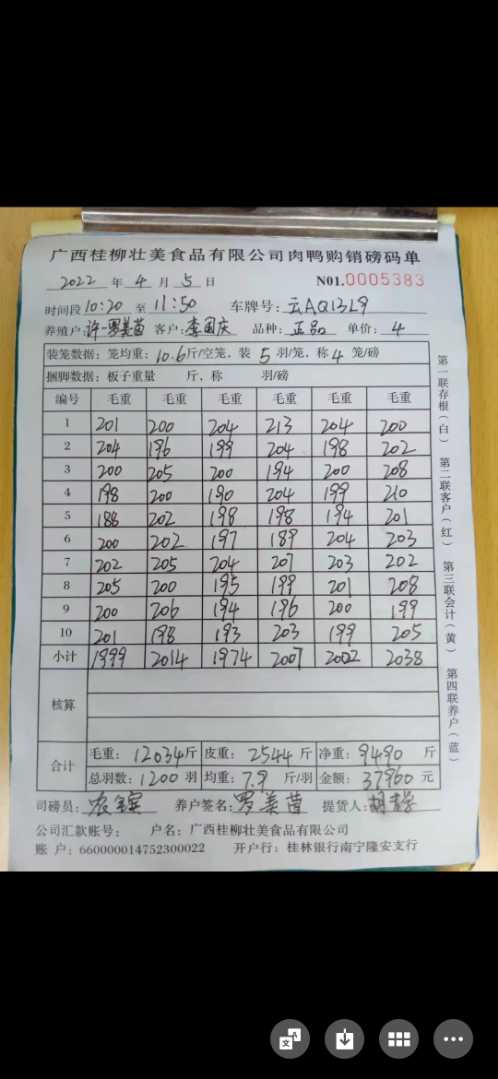 广西桂柳壮美食品有限公司肉鸭购销磅码单
2022 年 4 月 5 日 N01.0005383
时间段 10:20 至 11:50 车牌号: 云AQ13L9
养殖户: 许-罗美苗 客户: 李国庆 品种: 正品 单价: 4
装笼数据: 笼均重: 10.6 斤/空笼, 装 5 羽/笼, 称 4 笼/磅
捆脚数据: 板子重量 斤, 称 羽/磅
编号 毛重 毛重 毛重 毛重 毛重 毛重
1 201 200 204 213 204 200
2 204 196 199 204 198 202
3 200 205 200 194 200 208
4 198 200 190 204 199 210
5 188 202 198 198 194 201
6 200 202 197 189 204 203
7 202 205 204 207 203 202
8 205 200 195 199 201 208
9 200 206 194 196 200 199
10 201 198 193 203 199 205
小计 1999 2014 1974 2007 2002 2038
核算
合计 毛重: 12034 斤 皮重: 2544 斤 净重: 9490 斤
总羽数: 1200 羽 均重: 7.9 斤/羽 金额: 37960 元
司磅员: 养户签名: 罗美苗 提货人:
公司汇款账号: 户名: 广西桂柳壮美食品有限公司
账 户: 660000014752300022 开户行: 桂林银行南宁隆安支行
第一联存根(白) 第二联客户(红) 第三联会计(黄) 第四联养户(蓝)